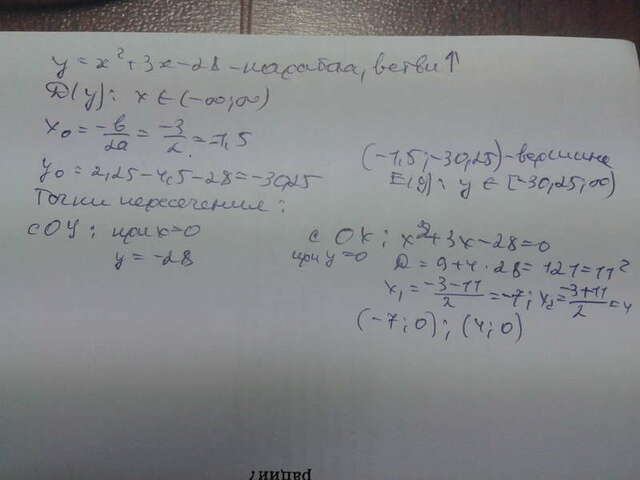 y = x² + 3x - 28 - парабола, ветви ↑
D(y): x ∈ (-∞; ∞)
x₀ = -b/2a = -3/2 = -1,5
y₀ = 2,25 - 4,5 - 28 = -30,25
(-1,5; -30,25) - вершина
E(y): y ∈ [-30,25; ∞)
Точки пересечения:
с OY: при x=0
y = -28
с OX: x² + 3x - 28 = 0
при y=0
D = 9 + 4 · 28 = 121 = 11²
x₁ = (-3-11)/2 = -7; x₂ = (-3+11)/2 = 4
(-7; 0); (4; 0)
рации?